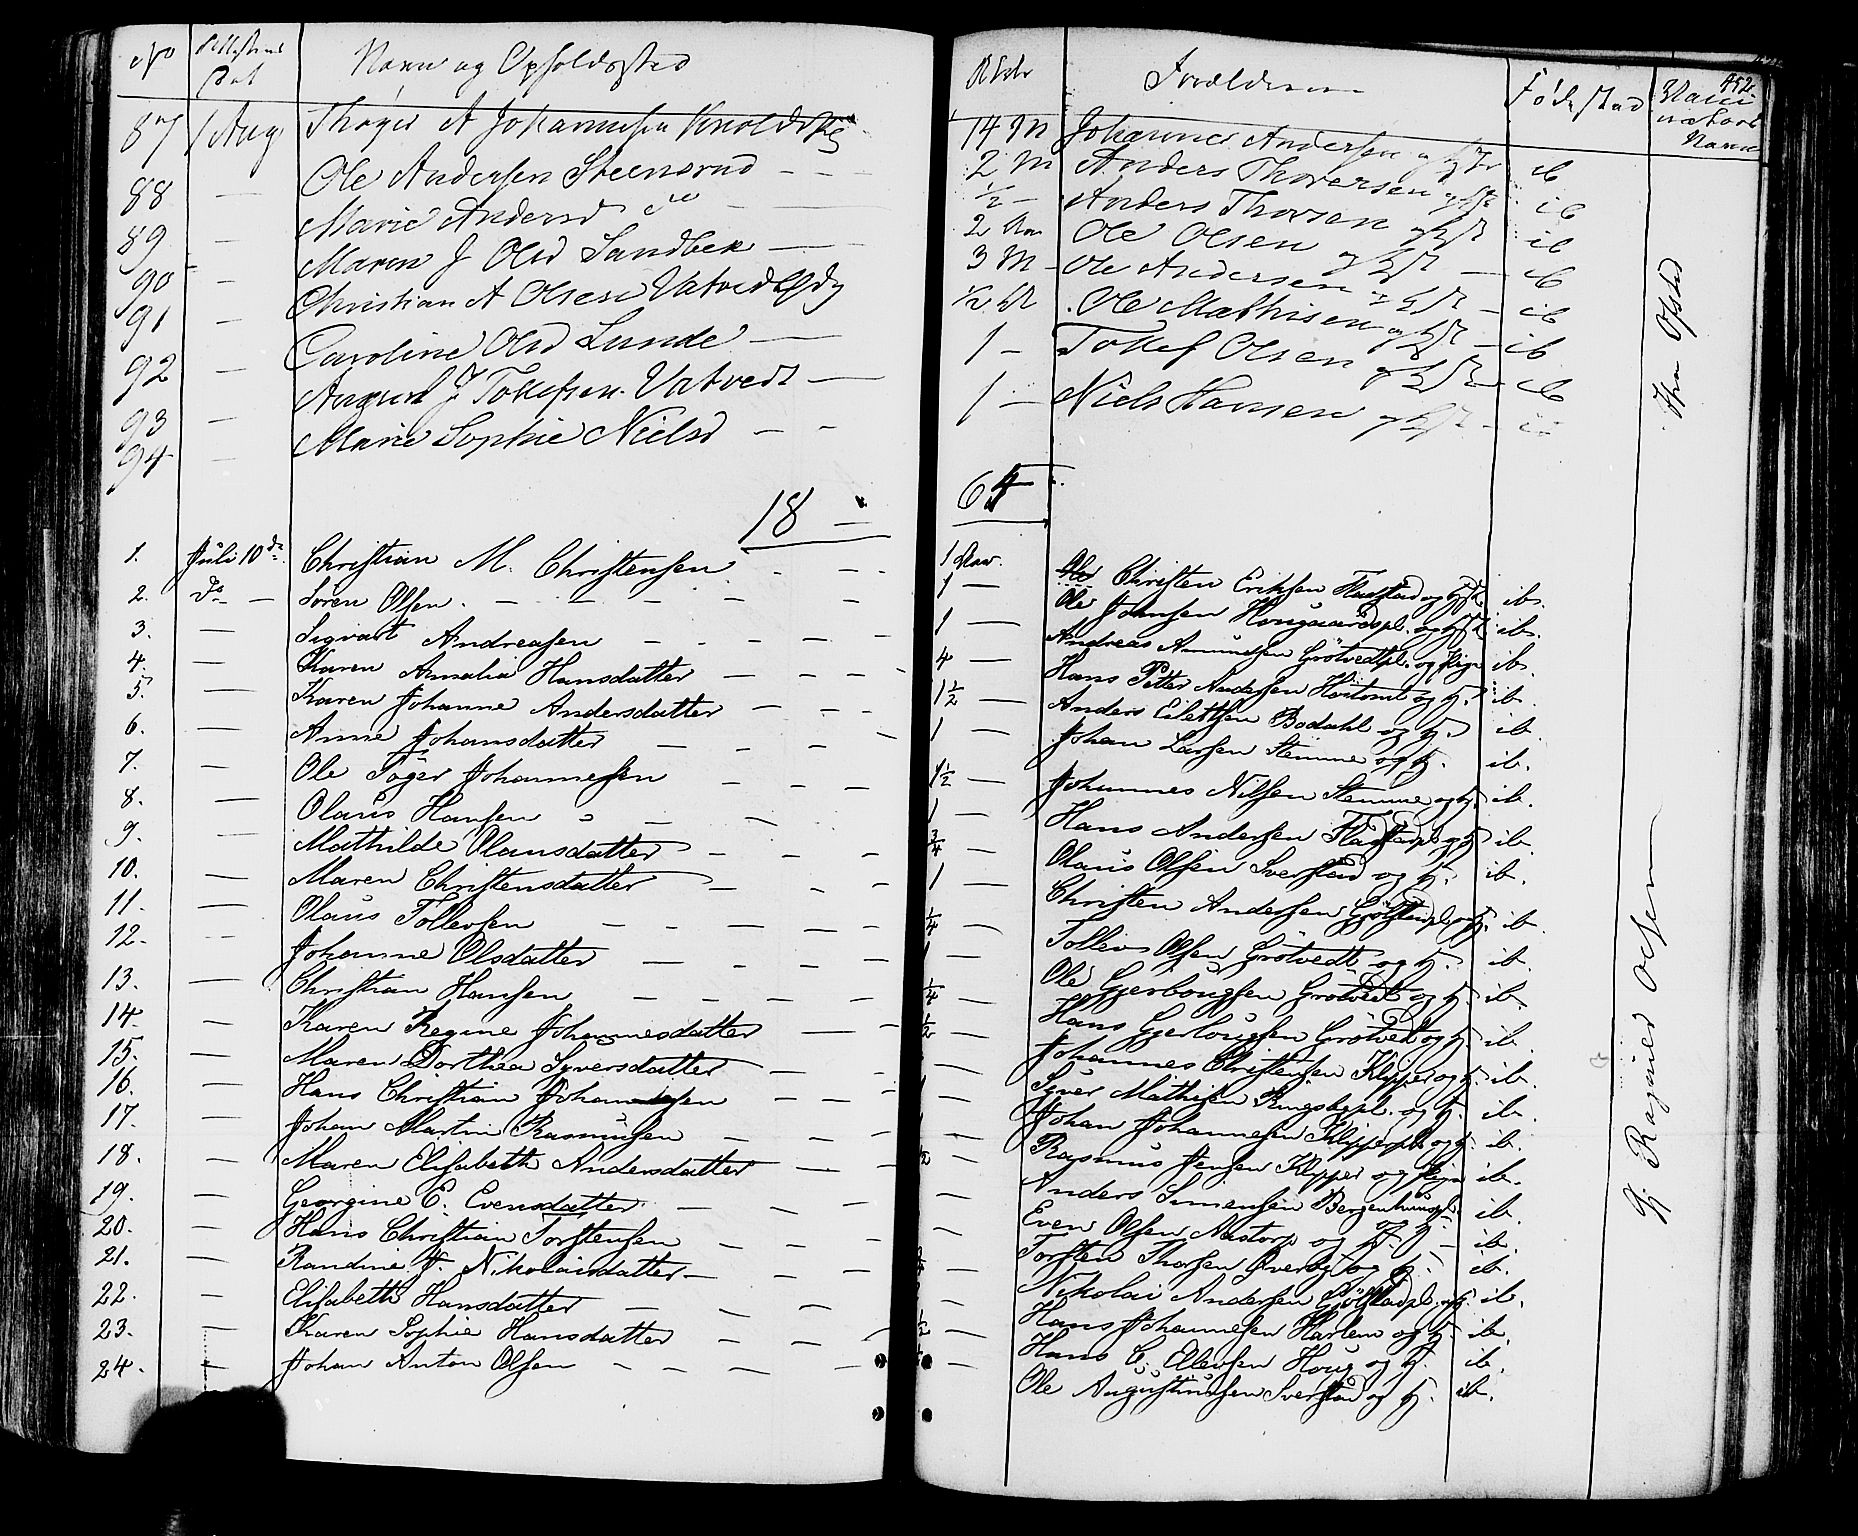 No Attestens Dat Navn og Opholdssted Alder Forældrene Fødested Navn 452
87 1 Aug Thøger A Johannesen 14 M Johannes Andersen og H ib
88 — Ole Andersen Steensrud — — 2 M Anders Thoresen og H ib
89 — Marie Andersd do — — ½ — Anders Thorsen og H ib
90 — Maren J Olsd Sandbek — 2 Aar Ole Olsen og H — ib
91 — Christian A Olsen Vatvedt 3 M — Ole Andersen og H — ib
92 — Caroline Olsd Lunde — ½ Ole Mathisen og H — ib
93 — August J Tollefsen Vatvedt — 1 — Tollef Olsen og H — ib
94 — Marie Sophie Nielsd — — 1 — Niels Hansen og H — ib
18 — 64
1. Juli 10de Christian M. Christensen — — 1 Aar. Christen Eriksen Fladstad og H ib.
2. do — Søren Olsen. — — — — 1 — Ole Johnsen Hougaardspl. og H ib.
3. — Sigvart Andreasen — — — 1 — Andreas Amundsen Grötvedtpl. og Pige ib.
4. — Karen Amalia Hansdatter — — — 4 — Hans Petter Andersen og H. ib.
5. — Karen Johanne Andersdatter — — 1½ — Anders Eilertsen Bödahl og H. ib.
6. — Anne Johansdatter — — — 1 — Johan Larsen Stemme og H. ib.
7. — Ole Töger Johannesen — — — 1½ — Johannes Nilsen Stemme og H. ib.
8. — Olaus Hansen — — 1 — Hans Andersen Fladstadpl. og H ib.
9. — Mathilde Olausdatter — — — ¾ — Olaus Olsen Sverstad og H. ib.
10. — Maren Christensdatter — — — 1 — Christen Andersen Gjölstadpl. og H ib.
11. — Olaus Tollevsen — — — ¼ — Tollev Olsen Grötvedt og H. ib.
12. — Johanne Olsdatter — — — 1 — Ole Gjerbougsen Grötvedt og H. ib.
13. — Christian Hansen — — — ¼ — Hans Gjerbougsen Grötvedt og H. ib.
14. — Karen Regine Johannesdatter — — ½ — Johannes Christensen Klypper og H. ib.
15. — Maren Dorthea Syversdatter — — Syver Mathisen Ringsbypl. og H. ib.
16. — Hans Christian Johannesen — — — Johan Johannesen Klypperpl. og H. ib.
17. — Johan Martin Rasmusen — — — Rasmus Jensen Klypper og Pige ib.
18. — Maren Elisabeth Andersdatter — — ½ — Anders Simensen Bergenhuuspl. og H. ib.
19. — Georgine E. Evensdatter — — — Even Olsen Nastorp og H. — ib.
20. — Hans Christian Torstensen — — — Torsten Thorsen Överby og H. ib.
21. — Randine J. Nikolaisdatter — — — Nikolai Andersen Gjölstadpl. og H. ib.
22. — Elisabeth Hansdatter — — — Hans Johannesen Harlem og H. ib.
23. — Karen Sophie Hansdatter — — ½ — Hans C. Ellevsen Houg og H. ib.
24. — Johan Anton Olsen — — — — Ole Augustinusen Sverstad og H. ib.
Fru Ofsted
Hr. Ragnier Olsen